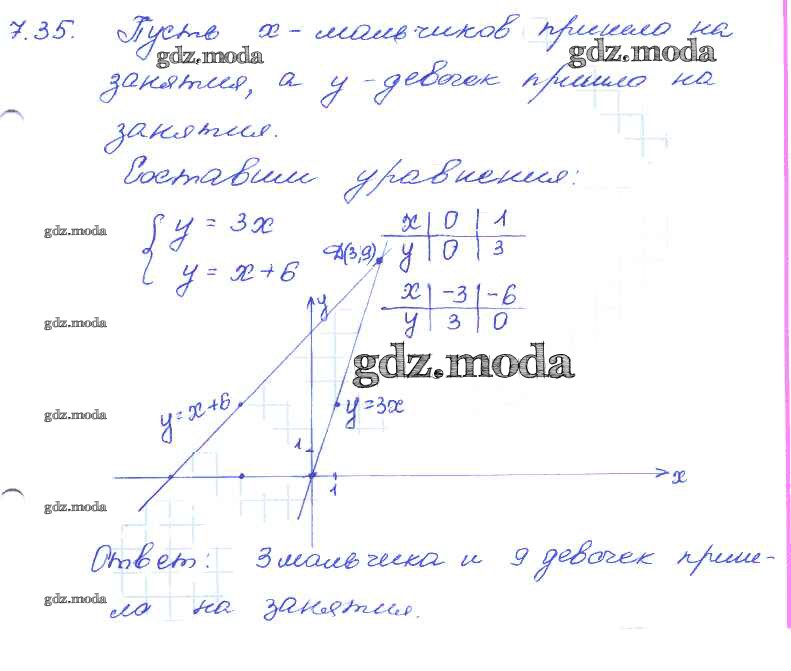 7.35. Пусть x - мальчиков пришло на
gdz.moda gdz.moda
занятия, а y - девочек пришло на
занятия.
Составим уравнения:
{ y = 3x
y = x + 6
gdz.moda
x | 0 | 1
y | 0 | 3
D(3,9)
x | -3 | -6
y | 3 | 0
y
gdz.moda
gdz.moda
y = x + 6
y = 3x
gdz.moda
1
1
x
gdz.moda
Ответ: 3 мальчика и 9 девочек приш-
gdz.moda
ло на занятия.